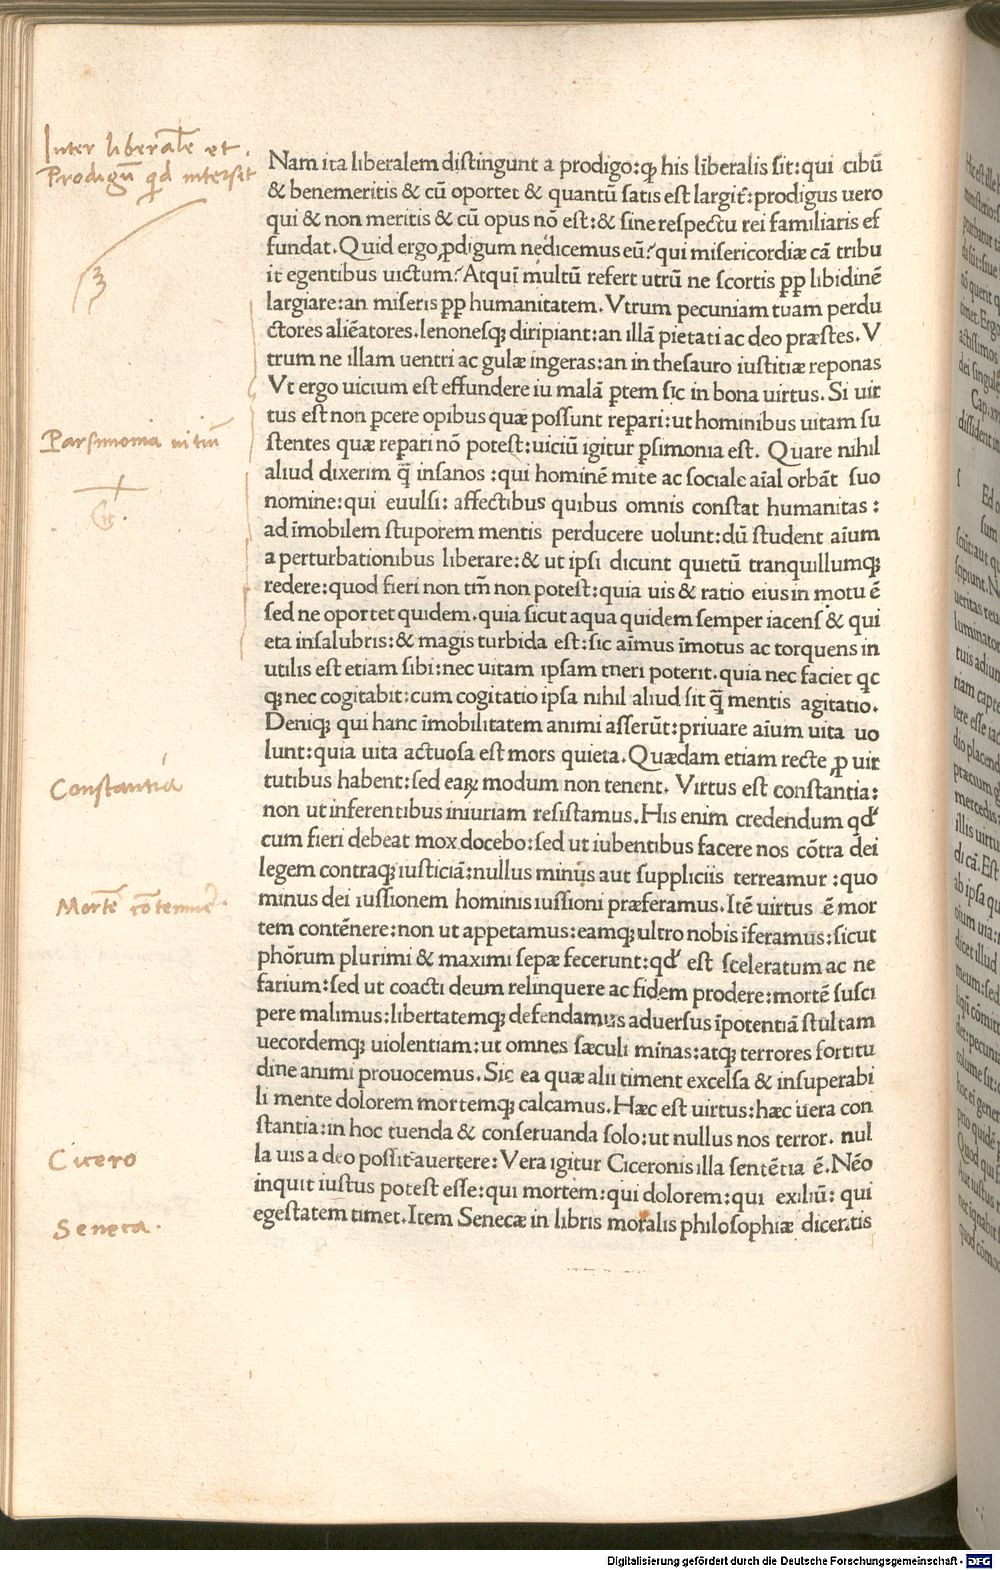 Inter liberale et
Prodigū qd intersit
Parsimonia uitiū
Constantia
Mortē cōtemnere.
Cicero
Seneca.
Nam ita liberalem distingunt a prodigo:ꝙ his liberalis sit:qui cibū
& benemeritis & cū oportet & quantū satis est largit̄:prodigus uero
qui & non meritis & cū opus nō est:& sine respectu rei familiaris ef
fundat.Quid ergo ꝓdigum nedicemus eū?qui misericordiæ cā tribu
it egentibus uictum?Atqui multū refert utrū ne scortis ꝓp libidinē
largiare:an miseris ꝓp humanitatem.Vtrum pecuniam tuam perdu
ctores aliēatores.lenonesq; diripiant:an illā pietati ac deo præstes.V
trum ne illam uentri ac gulæ ingeras:an in thesauro iustitiæ reponas
Vt ergo uicium est effundere iu malā ꝑtem sic in bona uirtus. Si uir
tus est non ꝑcere opibus quæ possunt reparí:ut hominibus uitam su
stentes quæ reparí nō potest:uiciū igitur ꝑsimonia est. Quare nihil
aliud dixerim q̄ insanos :qui hominēm mite ac sociale aīal orbāt suo
nomine:qui euulsi: affectibus quibus omnis constat humanitas :
ad īmobilem stuporem mentis perducere uolunt:dū student aīum
a perturbationibus liberare:& ut ipsi dicunt quietū tranquillumq;
redere:quod fieri non tm̄ non potest:quia uis & ratio eius in motu ē
sed ne oportet quidem.quia sicut aqua quidem semper iacens & qui
eta insalubris:& magis turbida est:sic aīmus īmotus ac torquens in
utilis est etiam sibi:nec uitam ipsam tueri poterit.quia nec faciet qc
q; nec cogitabit:cum cogitatio ipsa nihil aliud sit q̄ mentis agitatio.
Deniq; qui hanc īmobilitatem animi asserūt:priuare aīum uita uo
lunt:quia uita actuosa est mors quieta.Quædam etiam recte ꝓ uir
tutibus habent:sed eaꝝ modum non tenent. Virtus est constantia:
non ut inferentibus iniuriam resistamus.His enim credendum qd'
cum fieri debeat mox docebo:sed ut iubentibus facere nos cōtra dei
legem contraq; iusticiā:nullus minus aut suppliciis terreamur :quo
minus dei iussionem hominis iussioni præferamus.Itē uirtus ē mor
tem contēnere:non ut appetamus:eamq; ultro nobis īferamus:sicut
phōrum plurimi & maximi sepæ fecerunt:qd' est sceleratum ac ne
farium:sed ut coacti deum relinquere ac fidem prodere:mortē susci
pere malimus:libertatemq; defendamus aduersus īpotentiā stultam
uecordemq; uiolentiam:ut omnes sæculi minas:atq; terrores fortitu
dine animi prouocemus.Sic ea quæ alii timent excelsa & insuperabi
li mente dolorem mortemq; calcamus.Hæc est uirtus:hæc uera con
stantia:in hoc tuenda & conseruanda solo:ut nullus nos terror. nul
la uis a deo possit auertere:Vera igitur Ciceronis illa sentētia ē.Nēo
inquit iustus potest esse:qui mortem:qui dolorem:qui exiliū: qui
egestatem timet.Item Senecæ in libris moralis philosophiæ dicentis
Digitalisierung gefördert durch die Deutsche Forschungsgemeinschaft - DFG